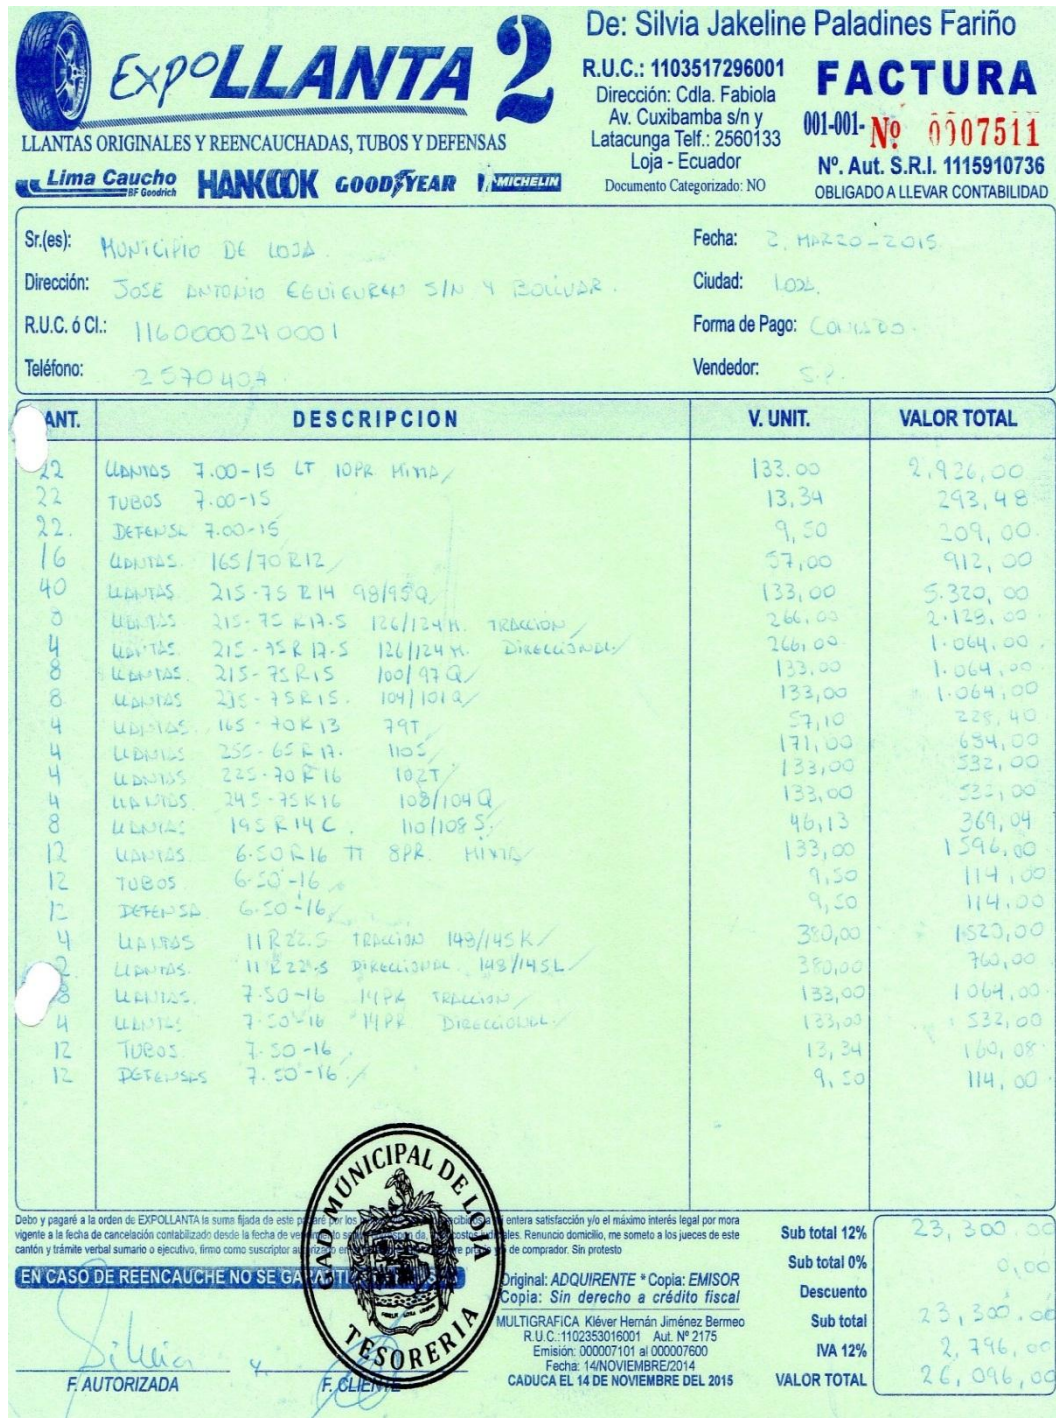 EXPOLLANTA 2
LLANTAS ORIGINALES Y REENCAUCHADAS, TUBOS Y DEFENSAS
Lima Caucho BF Goodrich HANKOOK GOODYEAR MICHELIN
De: Silvia Jakeline Paladines Fariño
R.U.C.: 1103517296001
Dirección: Cdla. Fabiola
Av. Cuxibamba s/n y
Latacunga Telf.: 2560133
Loja - Ecuador
Documento Categorizado: NO
FACTURA
001-001- Nº 0007511
Nº. Aut. S.R.I. 1115910736
OBLIGADO A LLEVAR CONTABILIDAD
Sr.(es): MUNICIPIO DE LOJA.
Fecha: 2. MARZO-2015
Dirección: JOSE ANTONIO EGUIGUREN S/N Y BOLIVAR.
Ciudad: LOJA.
R.U.C. ó CI.: 1160000240001
Forma de Pago: CONTADO.
Teléfono: 2570407
Vendedor: S.P.
ANT. DESCRIPCION V. UNIT. VALOR TOTAL
22 LLANTAS 7.00-15 LT 10PR MIXTA 133.00 2,926,00
22 TUBOS 7.00-15 13,34 293,48
22. DEFENSA 7.00-15 9,50 209,00
16 LLANTAS. 165/70 R12 57,00 912,00
40 LLANTAS. 215-75 R14 98/95Q 133,00 5.320,00
8 LLANTAS 215-75 R17.5 126/124M. TRACCION 266,00 2.128,00
4 LLANTAS. 215-75R 17.5 126/124M. DIRECCIONAL 266,00 1.064,00
8 LLANTAS. 215-75R15 100/97Q 133,00 1.064,00
8. LLANTAS 235-75R15. 104/101Q 133,00 1.064,00
4 LLANTAS. 165-70R13 79T 57,10 228,40
4 LLANTAS 255-65R17. 110S 171,00 684,00
4 LLANTAS 225-70 R16 102T 133,00 532,00
4 LLANTAS. 245-75R16 108/104Q 133,00 532,00
8 LLANTAS 195 R14C. 110/108S. 46,13 369,04
12 LLANTAS. 6.50R16 TT 8PR. MIXTA 133,00 1596,00
12 TUBOS 6.50-16 9,50 114,00
12 DEFENSA 6.50-16 9,50 114,00
4 LLANTAS 11R22.5 TRACCION 148/145K 380,00 1520,00
2. LLANTAS. 11R22.5 DIRECCIONAL. 148/145L 380,00 760,00
8 LLANTAS. 7.50-16 14PR TRACCION 133,00 1064,00
4 LLANTAS 7.50-16 14PR DIRECCIONAL 133,00 532,00
12 TUBOS. 7.50-16 13,34 160,08
12 DEFENSAS 7.50-16 9,50 114,00
Debo y pagaré a la orden de EXPOLLANTA la suma fijada de este pagaré por los entera satisfacción y/o el máximo interés legal por mora
vigente a la fecha de cancelación contabilizado desde la fecha de Renuncio domicilio, me someto a los jueces de este
cantón y trámite verbal sumario o ejecutivo, firmo como suscriptor de comprador. Sin protesto
EN CASO DE REENCAUCHE NO SE
GAD MUNICIPAL DE LOJA
TESORERIA
Original: ADQUIRENTE * Copia: EMISOR
Copia: Sin derecho a crédito fiscal
MULTIGRAFICA Kléver Hernán Jiménez Bermeo
R.U.C.:1102353016001 Aut. Nº 2175
Emisión: 000007101 al 000007600
Fecha: 14/NOVIEMBRE/2014
CADUCA EL 14 DE NOVIEMBRE DEL 2015
Silvia
F. AUTORIZADA
F. CLIENTE
Sub total 12% 23,300.00
Sub total 0% 0,00
Descuento
Sub total 23,300.00
IVA 12% 2,796,00
VALOR TOTAL 26,096,00